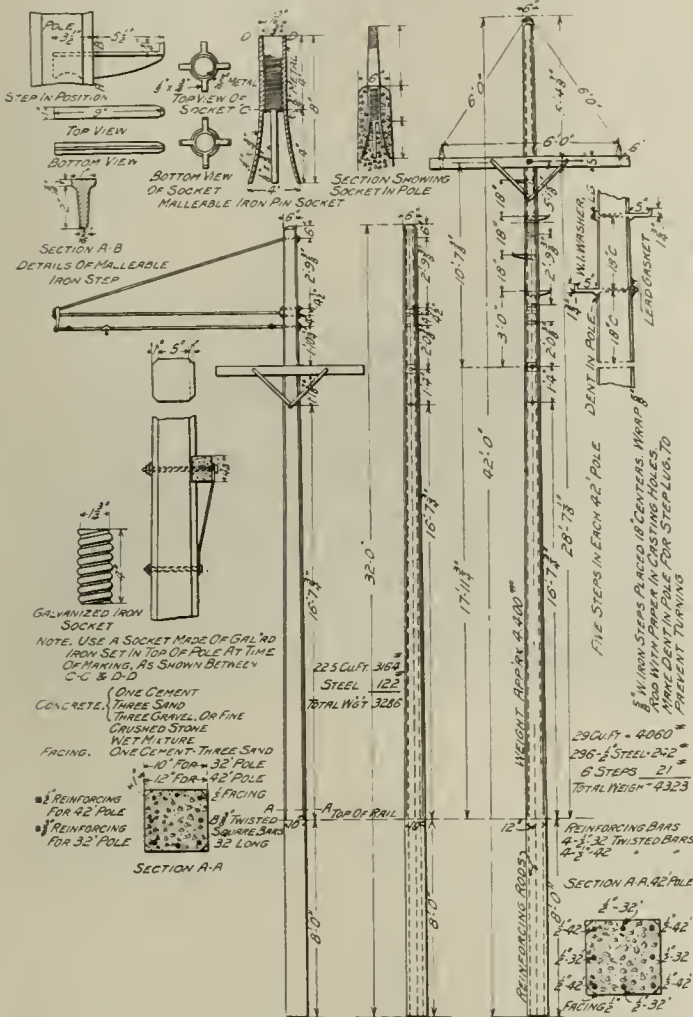 POLE
3½" 5½"
STEP IN POSITION
9"
TOP VIEW
BOTTOM VIEW
2"
SECTION A-B
DETAILS OF MALLEABLE
IRON STEP
METAL
TOP VIEW OF
SOCKET C
BOTTOM VIEW
OF SOCKET
MALLEABLE IRON PIN SOCKET
D D
METAL
8"
4"
4"
SECTION SHOWING
SOCKET IN POLE
6"
6'0"
6'0"
5'-4¾"
6'-0"
6"
5"
18"
18"
18"
3'-0"
10'-7⅞"
5'-18"
2'-9⅜"
2'0⅝"
1'-4"
W.I. WASHER
DENT IN POLE
LEAD GASKET
18"C
18"C
5"
5"
6"
6"
2'-9⅜"
1" 5" 1"
32'-0"
42'-0"
17'-11¾"
28'-7⅞"
16'-7¾"
16'-7¾"
16'-7¾"
1¾"
4"
GALVANIZED IRON
SOCKET
NOTE. USE A SOCKET MADE OF GAL'RD
IRON SET IN TOP OF POLE AT TIME
OF MAKING, AS SHOWN BETWEEN
C-C & D-D
CONCRETE.
ONE CEMENT
THREE SAND
THREE GRAVEL, OR FINE
CRUSHED STONE
WET MIXTURE
FACING. ONE CEMENT-THREE SAND
10" FOR 32' POLE
12" FOR 42' POLE
½" REINFORCING
FOR 42' POLE
⅜" REINFORCING
FOR 32' POLE
½" FACING
8-⅜" TWISTED
SQUARE BARS
32' LONG
SECTION A-A
22.5 CU.FT. 3164#
STEEL 122
TOTAL WGT 3286
A A TOP OF RAIL
10"
10"
12"
8'-0"
8'-0"
8'-0"
WEIGHT APPRX 4400#
REINFORCING RODS
FIVE STEPS IN EACH 42' POLE
⅝" W. IRON STEPS PLACED 18" CENTERS. WRAP ⅝"
ROD WITH PAPER IN CASTING HOLES.
MAKE DENT IN POLE FOR STEP LUG, TO
PREVENT TURNING
29 CU.FT = 4060#
296-½" STEEL-242#
6 STEPS 21#
TOTAL WEIGH- 4323
REINFORCING BARS
4-½"-32' TWISTED BARS
4-½"-42' " "
SECTION A-A. 42' POLE
½"-32'
½"-42' ½"-42'
½"-32' ½"-32'
½"-42' ½"-42'
FACING ½" ½"-32'